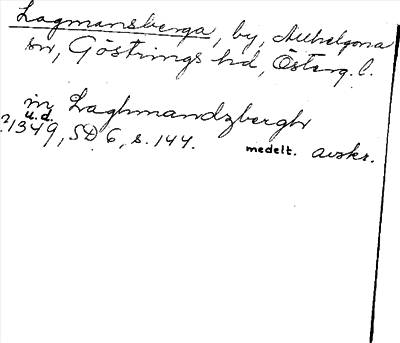 Lagmansberga, by, Allhelgona
sn, Göstrings hd, Österg. l.
in Laghmandzbergh
u.d.
?1349, SD 6, s. 144. medelt. avskr.